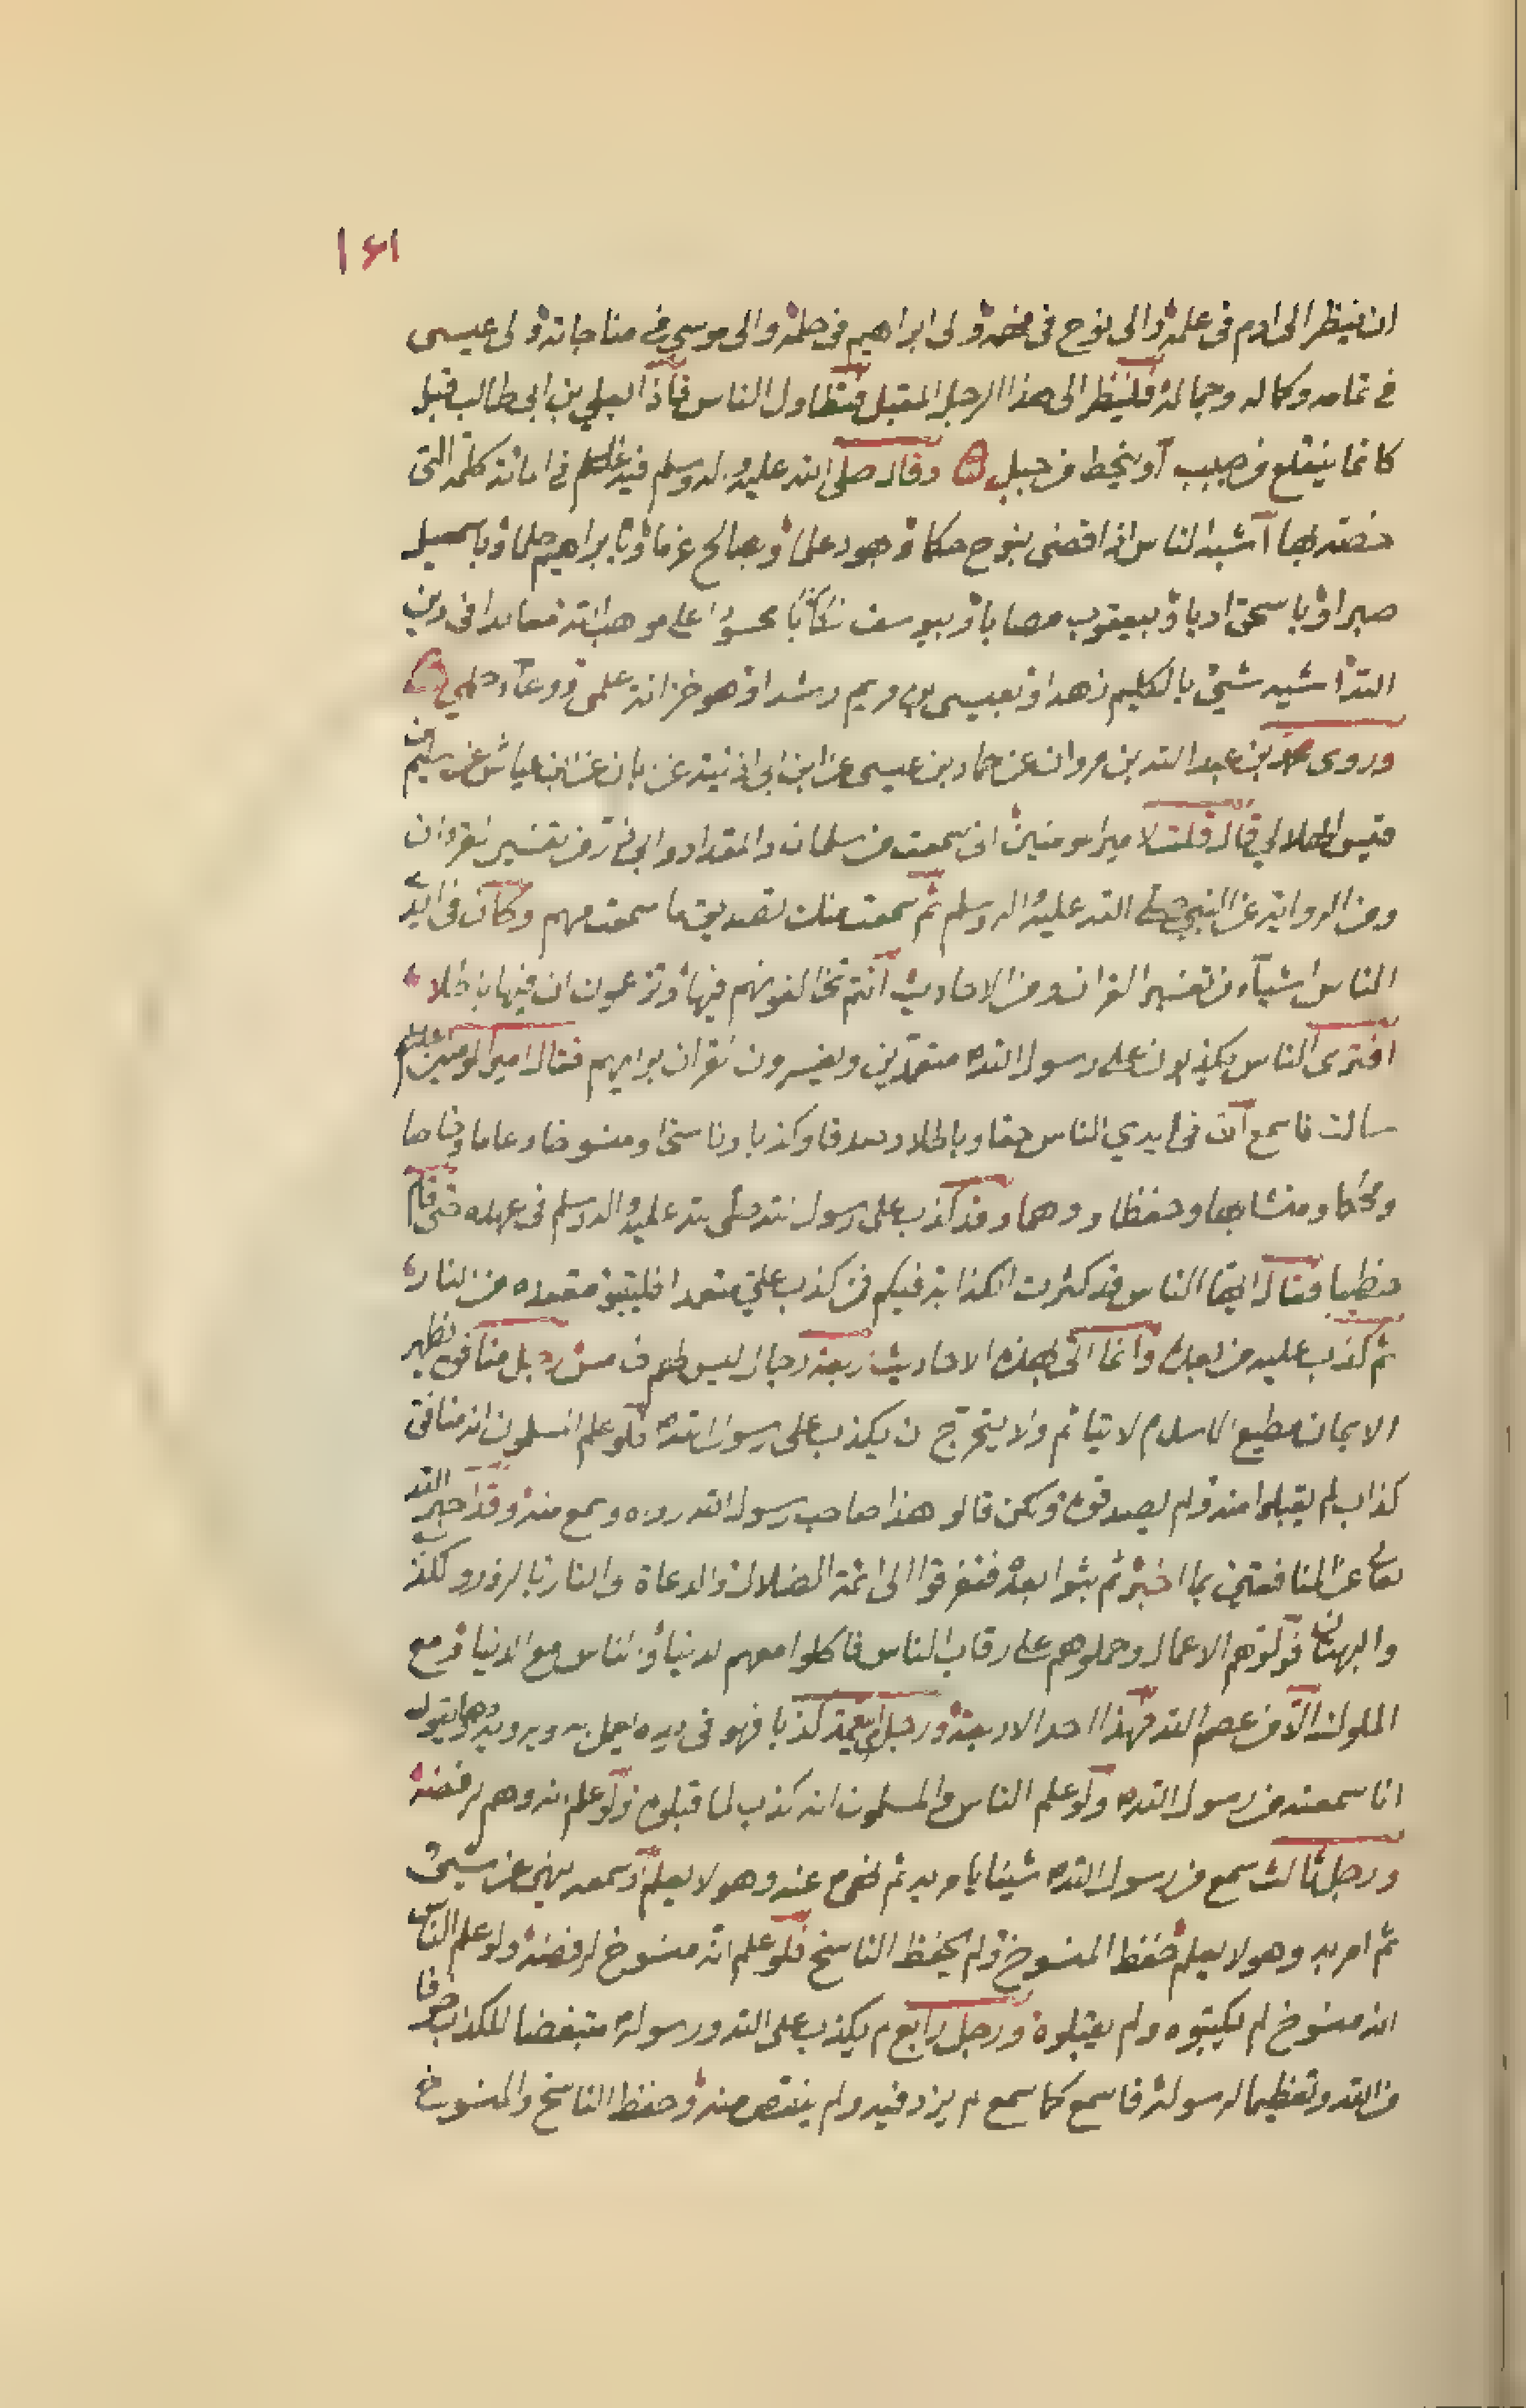 ١٦١
ان ينظر الى ادم فى علمه والى نوح فى فهمه والى ابراهيم فى حلمه والى موسى فى مناجاته والى عيسى
فى تمامه وكماله وجماله فلينظر الى هذا الرجل المقبل فتطاول الناس فاذا بعلي بن ابى طالب مقبل
كانما ينقلع من صبب او ينحط من جبل وقال صلى الله عليه واله وسلم فيه عليه السلم فى امانة كلمة التى
خصته بها اشبه الناس اذا قضى بنوح حكما وبهود علما وبصالح عزما وبابراهيم حلما وباسمعيل
صبرا وباسحق ادبا وبيعقوب مصابا وبيوسف تكذيبا محسودا على مواهب الله معاندا فى دين
الله اشبه شيئ بالكليم زهدا وبعيسى بن مريم رشدا وهو خزانة علمى ووعاء حلمي
وروى محمد بن عبد الله بن مروان عن حماد بن عيسى عن ابن ابى اذينة عن ابان عن ابن عياش عن سليم بن
قيس الهلالي قال قلت لامير المومنين انى سمعت من سلمان والمقداد وابى ذر من تفسير القران
ومن الرواية عن النبي صلى الله عليه واله وسلم ثم سمعت منك تصديق ما سمعت منهم وكان فى ايدي
الناس اشياء من تفسير القران ومن الاحاديث انتم تخالفونهم فيها وتزعمون ان فيها باطلا
افترى الناس يكذبون على رسول الله ص متعمدين ويفسرون القران برايهم فقال امير المومنين عليه السلم
سالت فاسمع ان فى ايدي الناس حقا وباطلا وصدقا وكذبا وناسخا ومنسوخا وعاما وخاصا
ومحكما ومتشابها وحفظا ووهما وقد كذب على رسول الله صلى الله عليه واله وسلم فى عهده حتى قام
خطيبا فقال ايها الناس قد كثرت الكذابة فيكم فمن كذب علي متعمدا فليتبوء مقعده من النار
ثم كذب عليه من بعده وانما اتى بهذه الاحاديث اربعة رجال ليس لهم خامس رجل منافق يظهر
الايمان مطيع الاسلام لا يتاثم ولا يتحرج ان يكذب على رسول الله ص فلو علم المسلمون انه منافق
كذاب لم يقبلوا منه ولم يصدقوه ولكن قالوا هذا صاحب رسول الله رواه وسمع منه وقد اخبر الله
تعالى عن المنافقين بما اخبر ثم بقوا بعده فتفرقوا الى ائمة الضلال والدعاة والنار بالزور والكذب
والبهتان فولوهم الاعمال وحملوهم على رقاب الناس فاكلوا معهم الدنيا والناس مع الدنيا ومع
الملوك الا من عصم الله فهذا احد الاربعة ورجل لم يتعمد كذبا فهو فى يده يعمل به ويرويه وهو يقول
انا سمعته من رسول الله ص ولو علم الناس والمسلمون انه كذب لما قبلوه ولو علم انه وهم لرفضه
ورجل ثالث سمع من رسول الله ص شيئا يامر به ثم نهى عنه وهو لا يعلم او سمعه ينهى عن شيئ
ثم امر به وهو لا يعلم حفظ المنسوخ ولم يحفظ الناسخ فلو علم انه منسوخ لرفضه ولو علم الناس
انه منسوخ لم يكتبوه ولم يقبلوه ورجل رابع لم يكذب على الله ورسوله متبغضا للكذب خوفا
من الله وتعظيما لرسوله فاسمع كما سمع لم يزد فيه ولم ينقص منه وحفظ الناسخ والمنسوخ